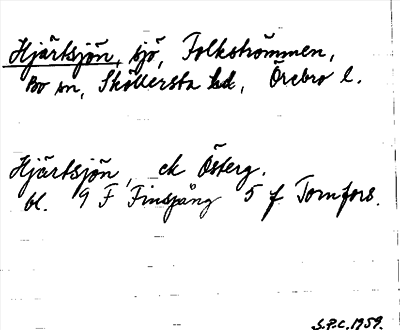 Hjärtsjön, sjö, Folkströmmen,
Bo sn, Sköllersta hd, Örebro l.
Hjärtsjön, ek Österg.
bl. 9 F Finspång 5 f Tomfors.
S.P.C. 1959.